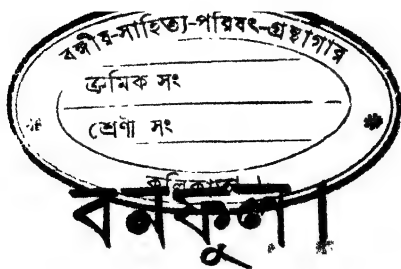 বঙ্গীয়-সাহিত্য-পরিষৎ-গ্রন্থাগার
ক্রমিক সং
শ্রেণী সং
কলিকাতা ।
বনফুল।